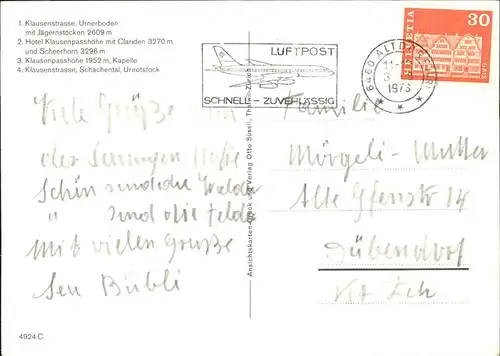 1. Klausenstrasse, Urnerboden
mit Jägernstöcken 2609 m
2. Hotel Klausenpasshöhe mit Clariden 3270 m
und Scheerhorn 3296 m
3. Klausenpasshöhe 1952 m, Kapelle
4. Klausenstrasse, Schächental, Urirotstock
LUFTPOST
SCHNELL – ZUVERLÄSSIG
6460 ALTDORF (URI)
1973
HELVETIA
30
GAIS
Viele Grüße
der
Schön sind die Wälder
" sind die Felder
Mit vielen Gruße
Bübli
Ansichtskarten-Druck und Verlag Otto Süssli, Zürich
Familie
Mörgeli-Mutter
Alte Gfennstr 14
Dübendorf
Kt Zch
4924 C